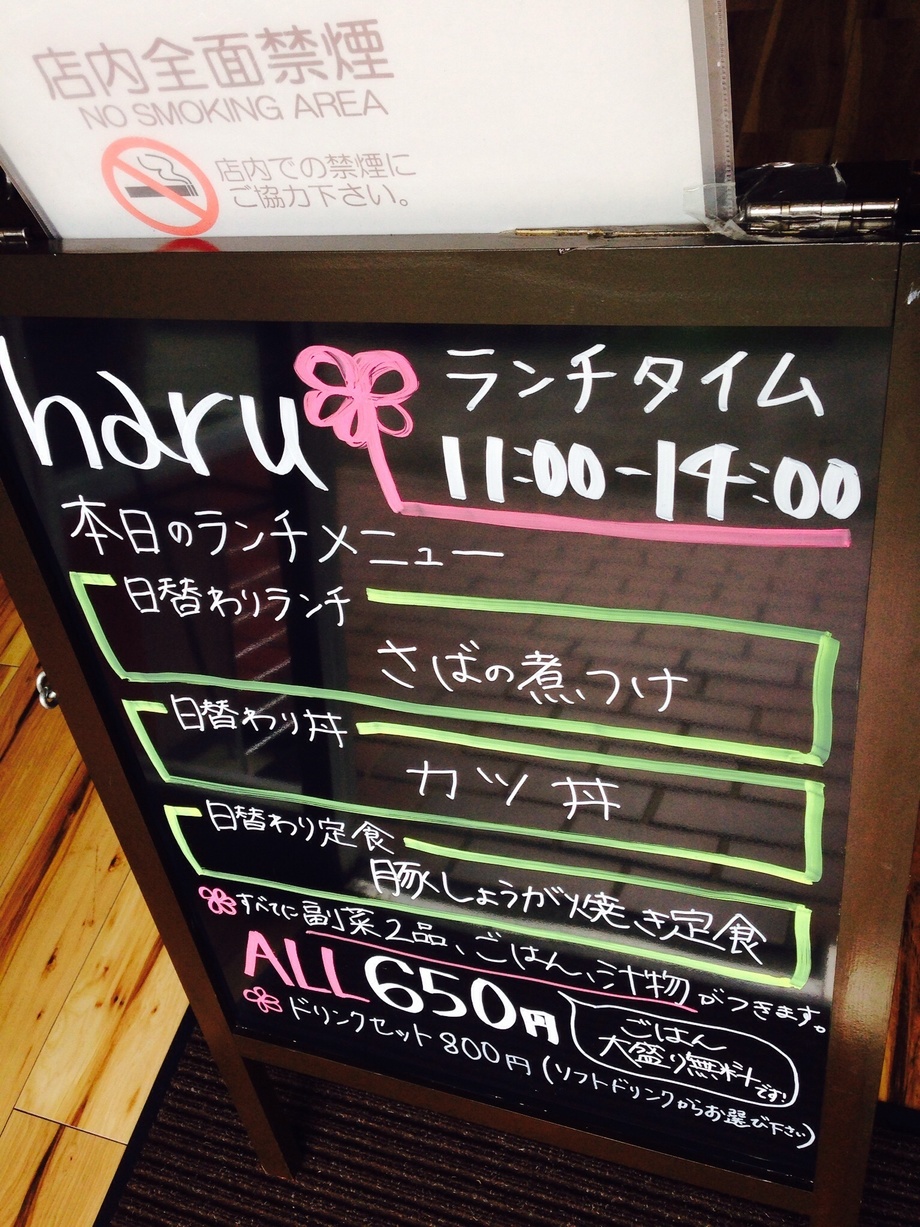 店内全面禁煙
NO SMOKING AREA
店内での禁煙に
ご協力下さい。
haru
ランチタイム
11:00-14:00
本日のランチメニュー
日替わりランチ
さばの煮つけ
日替わり丼
カツ丼
日替わり定食
豚しょうが焼き定食
すべてに副菜2品、ごはん、汁物がつきます。
ALL650円
ごはん
大盛り無料です!
ドリンクセット800円(ソフトドリンクからお選び下さい)